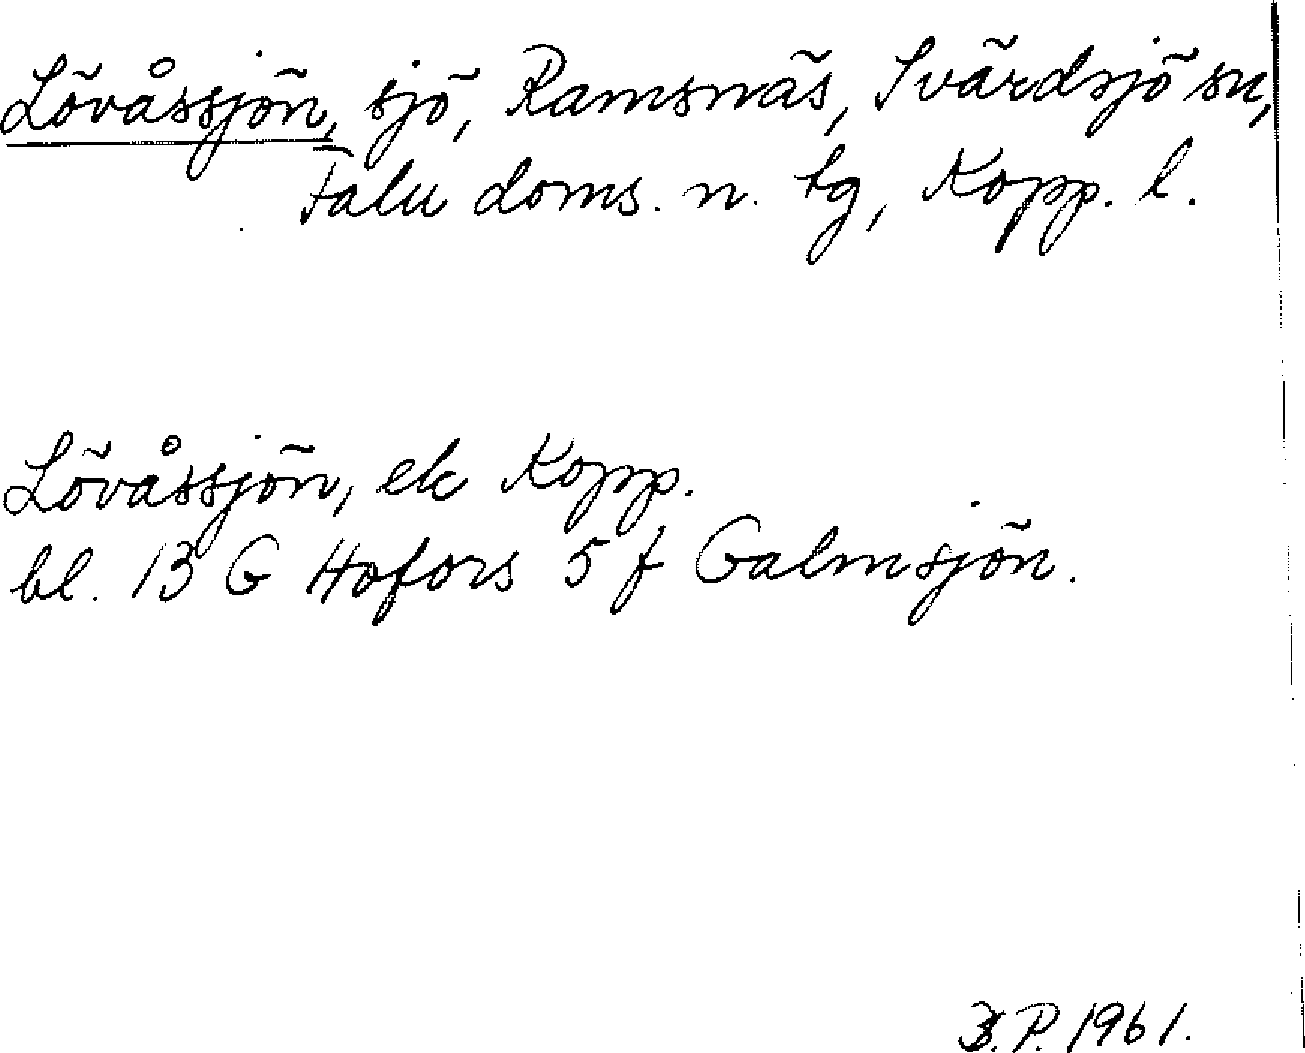 Lövåssjön, sjö, Ramsnäs, Svärdsjö sn,
Falu doms. n. tg, Kopp. l.
Lövåssjön, ek Kopp.
bl. 13 G Hofors 5 f Galmsjön.
B.P. 1961.